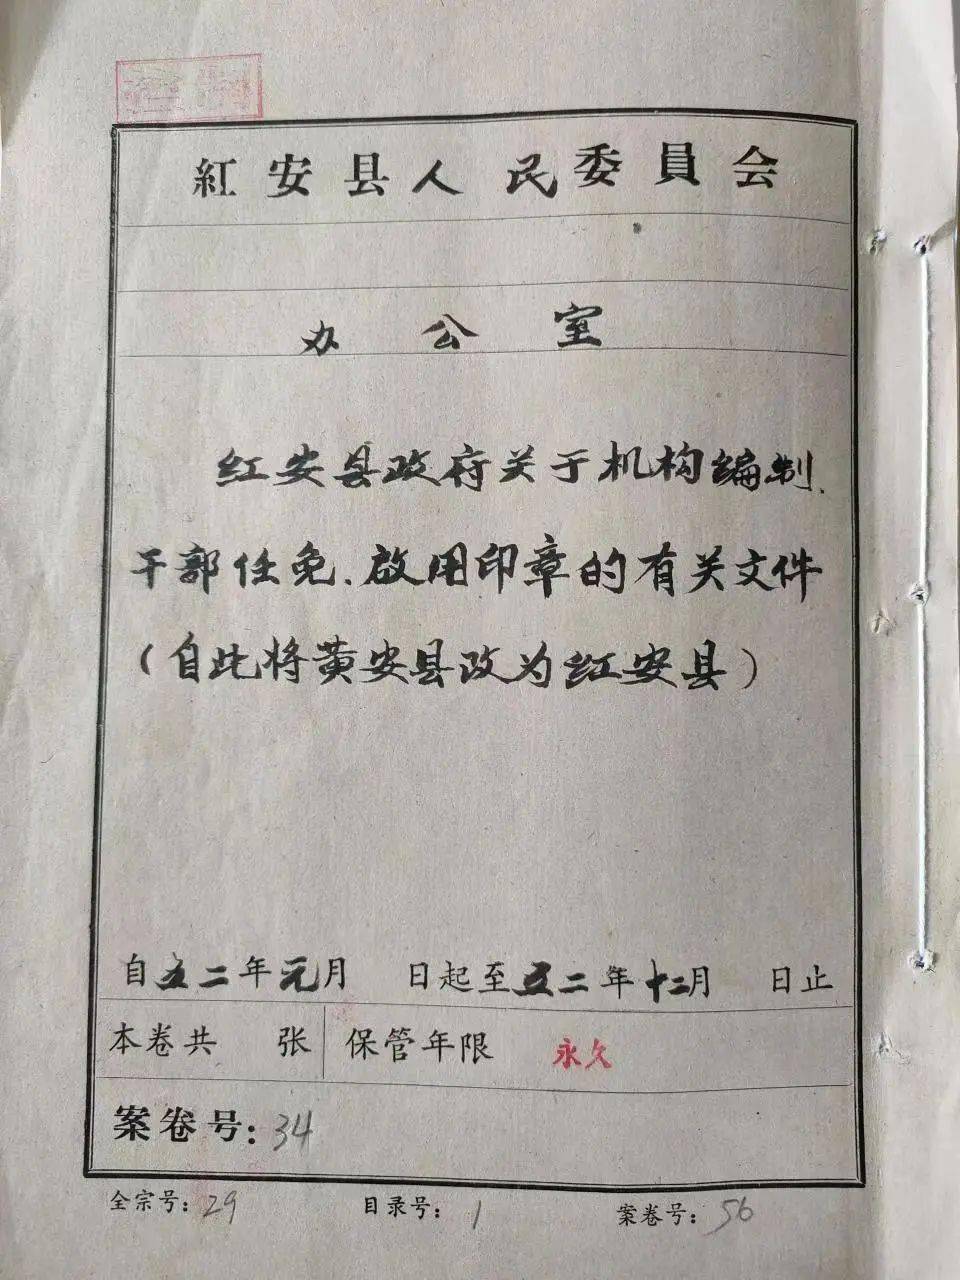 紅安县人民委員会
办公室
红安县政府关于机构编制、
干部任免、啟用印章的有关文件
（自此将黄安县改为红安县）
自五二年元月 日起至五二年十二月 日止
本卷共 张 保管年限 永久
案卷号：34
全宗号：29 目录号：1 案卷号：56